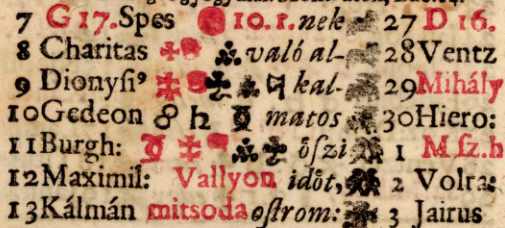 7 G 17. Spes 10. 1. nek 27 D 16.
8 Charitas való al- 28 Ventz
9 Dionyſi⁹ kal- 29 Mihály
10 Gedeon ☍ ♄ matos 30 Hiero:
11 Burgh: őſzi 1 M ſz. h
12 Maximil: Vallyon időt, 2 Volra:
13 Kálmán mitsoda oſtrom: 3 Jairus